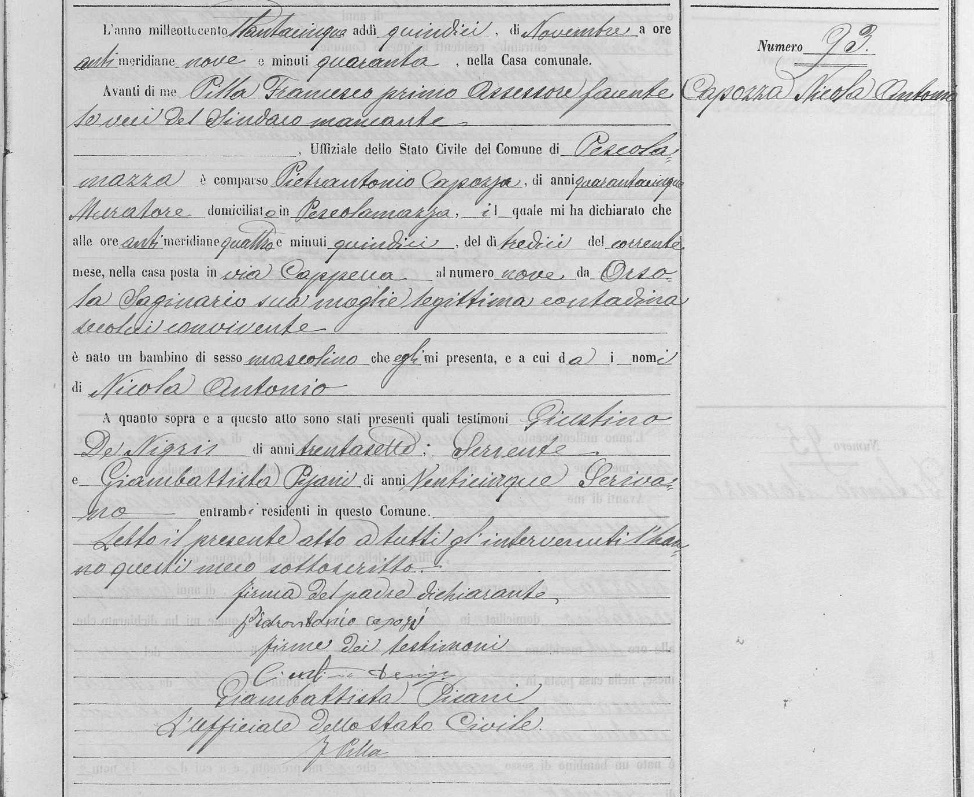 L'anno milleottocento ttantacinque addi quindici, di Novembre a ore
anti meridiane nove e minuti quaranta, nella Casa comunale.
Avanti di me Pilla Francesco primo Assessore facente
le veci del Sindaco mancante
, Uffiziale dello Stato Civile del Comune di Pescola-
mazza è comparso Pietrantonio Capozza, di anni quarantacinque
Muratore domiciliato in Pescolamazza, il quale mi ha dichiarato che
alle ore anti meridiane quattro e minuti quindici, del dì tredici del corrente
mese, nella casa posta in via Cappella al numero nove, da Orso-
la Saginario sua moglie legittima contadina
secolui convivente
è nato un bambino di sesso mascolino che egli mi presenta, e a cui da i nomi
di Nicola Antonio
A quanto sopra e a questo atto sono stati presenti quali testimoni Giustino
De Nigris di anni trentasette, Serviente
e Giambattista Pisani di anni Venticinque Scriva-
no entrambi residenti in questo Comune.
Letto il presente atto a tutti gl'intervenuti l'han-
no questi meco sottoscritto.
firma del padre dichiarante
Pietrantonio Capozzi
firme dei testimoni
Giambattista Pisani
L'uffiziale dello Stato Civile
F Pilla
Numero 93.
Capozza Nicola Antonio